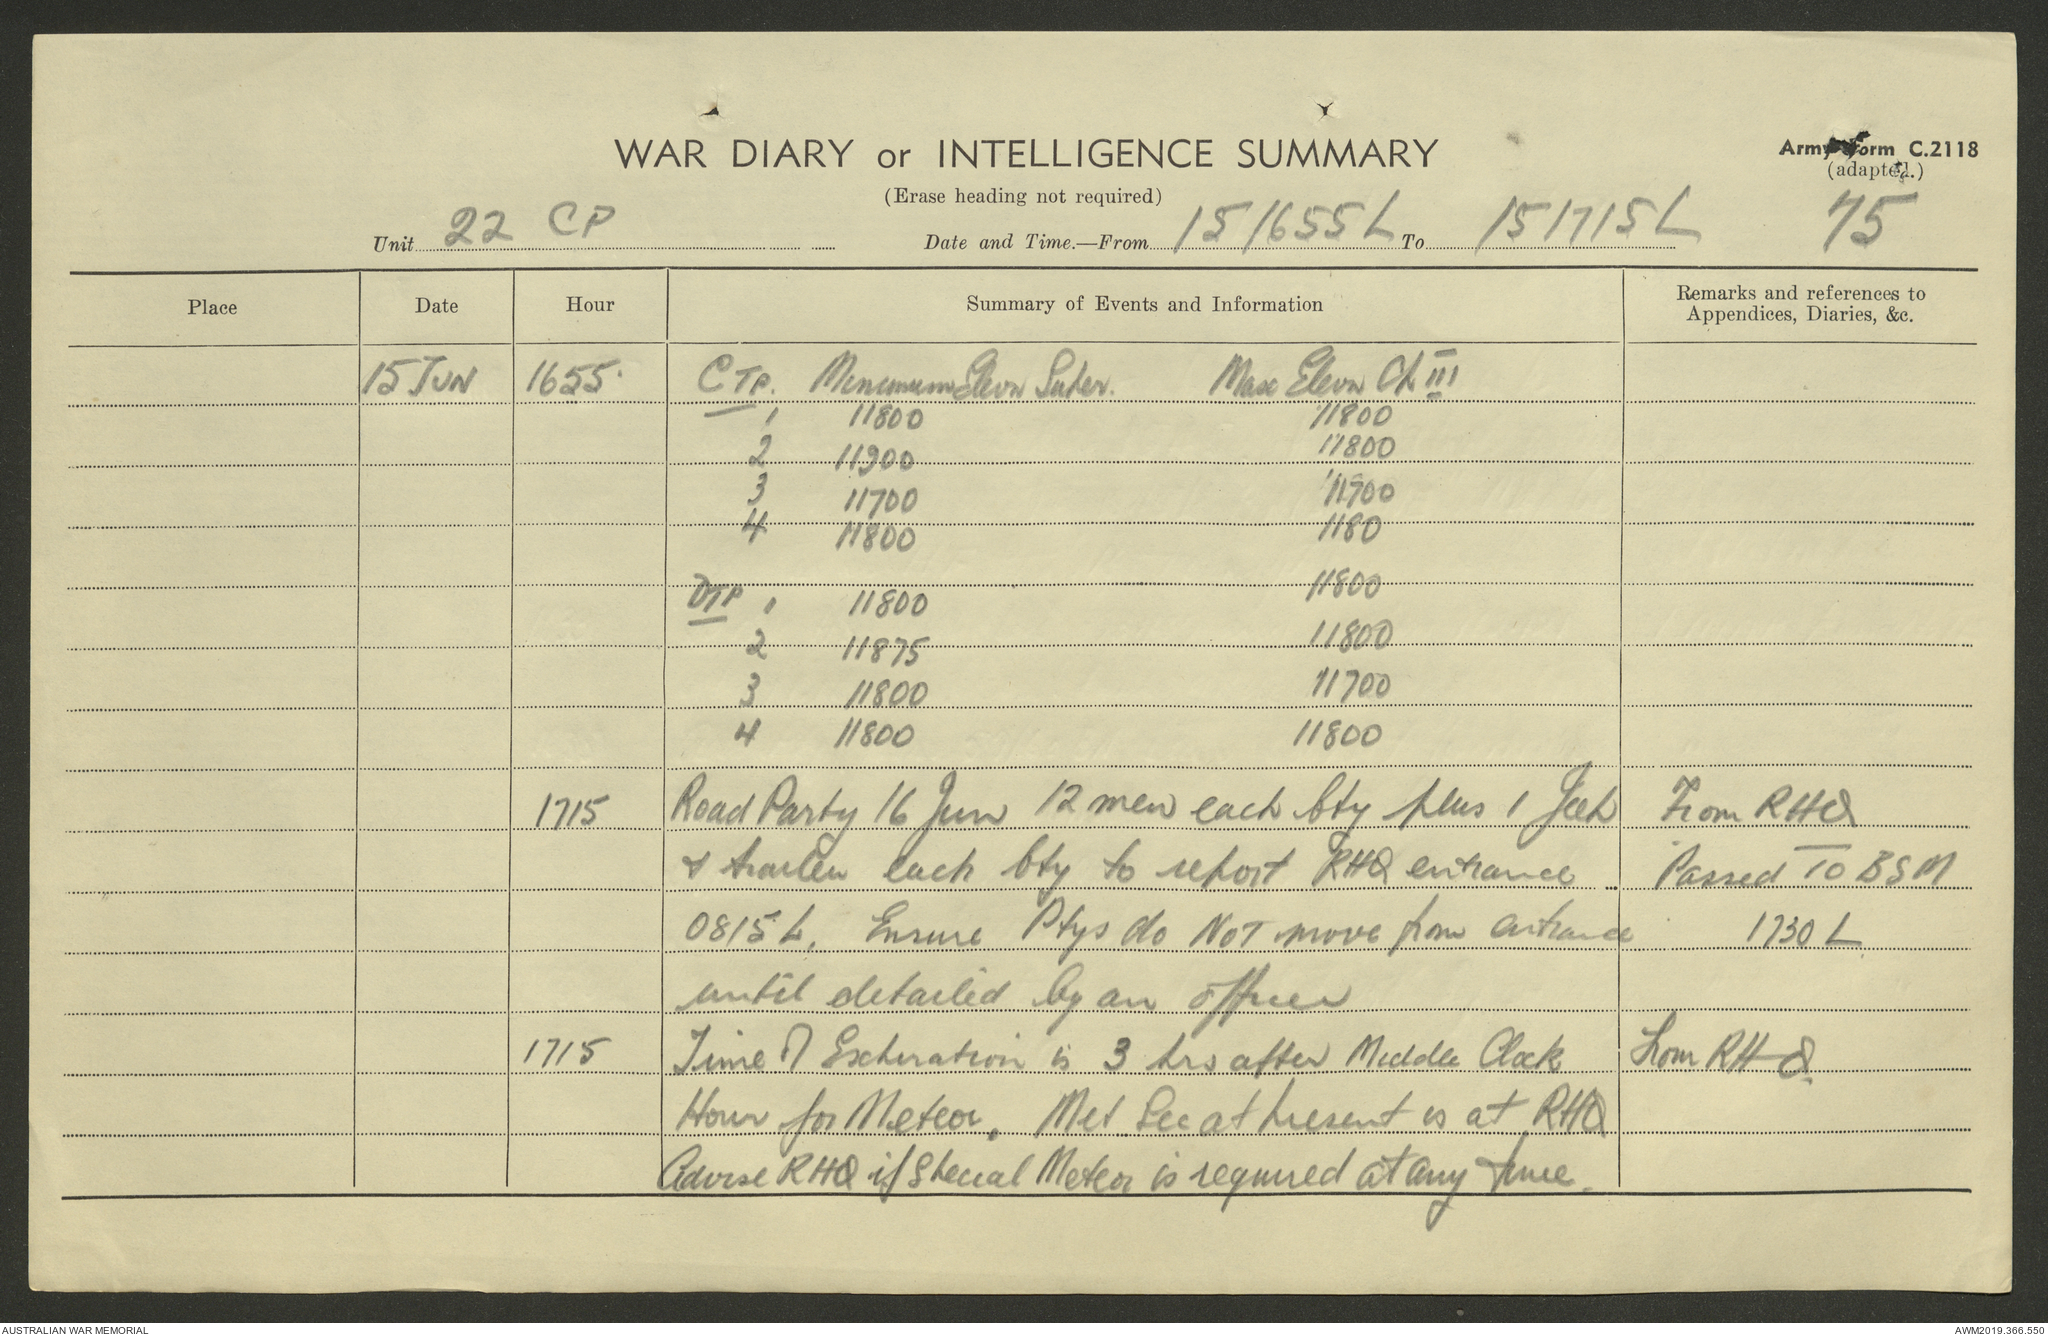 WAR DIARY or INTELLIGENCE SUMMARY
Army Form C.2118
(adapted.)
(Erase heading not required)
75
Unit 22 CP Date and Time.—From 151655L To 151715L
Place Date Hour Summary of Events and Information Remarks and references to Appendices, Diaries, &c.
15 JUN 1655. C TP. Minimum Elevn Super. Max Elevn Ch III
1 11800 11800
2 11900 11800
3 11700 11700
4 11800 1180
D TP 1 11800 11800
2 11875 11800
3 11800 11700
4 11800 11800
1715 Road Party 16 Jun 12 men each bty plus 1 Jeep From RHQ
& trailer each bty to report RHQ entrance Passed TO BSM
0815 L. Ensure Ptys do NOT move from entrance 1730 L
until detailed by an officer
1715 Time of Expiration is 3 hrs after Middle Clock From RHQ.
Hour for Meteor. Met Sec at present is at RHQ
Advise RHQ if special Meteor is required at any time.
AUSTRALIAN WAR MEMORIAL
AWM2019.366.550